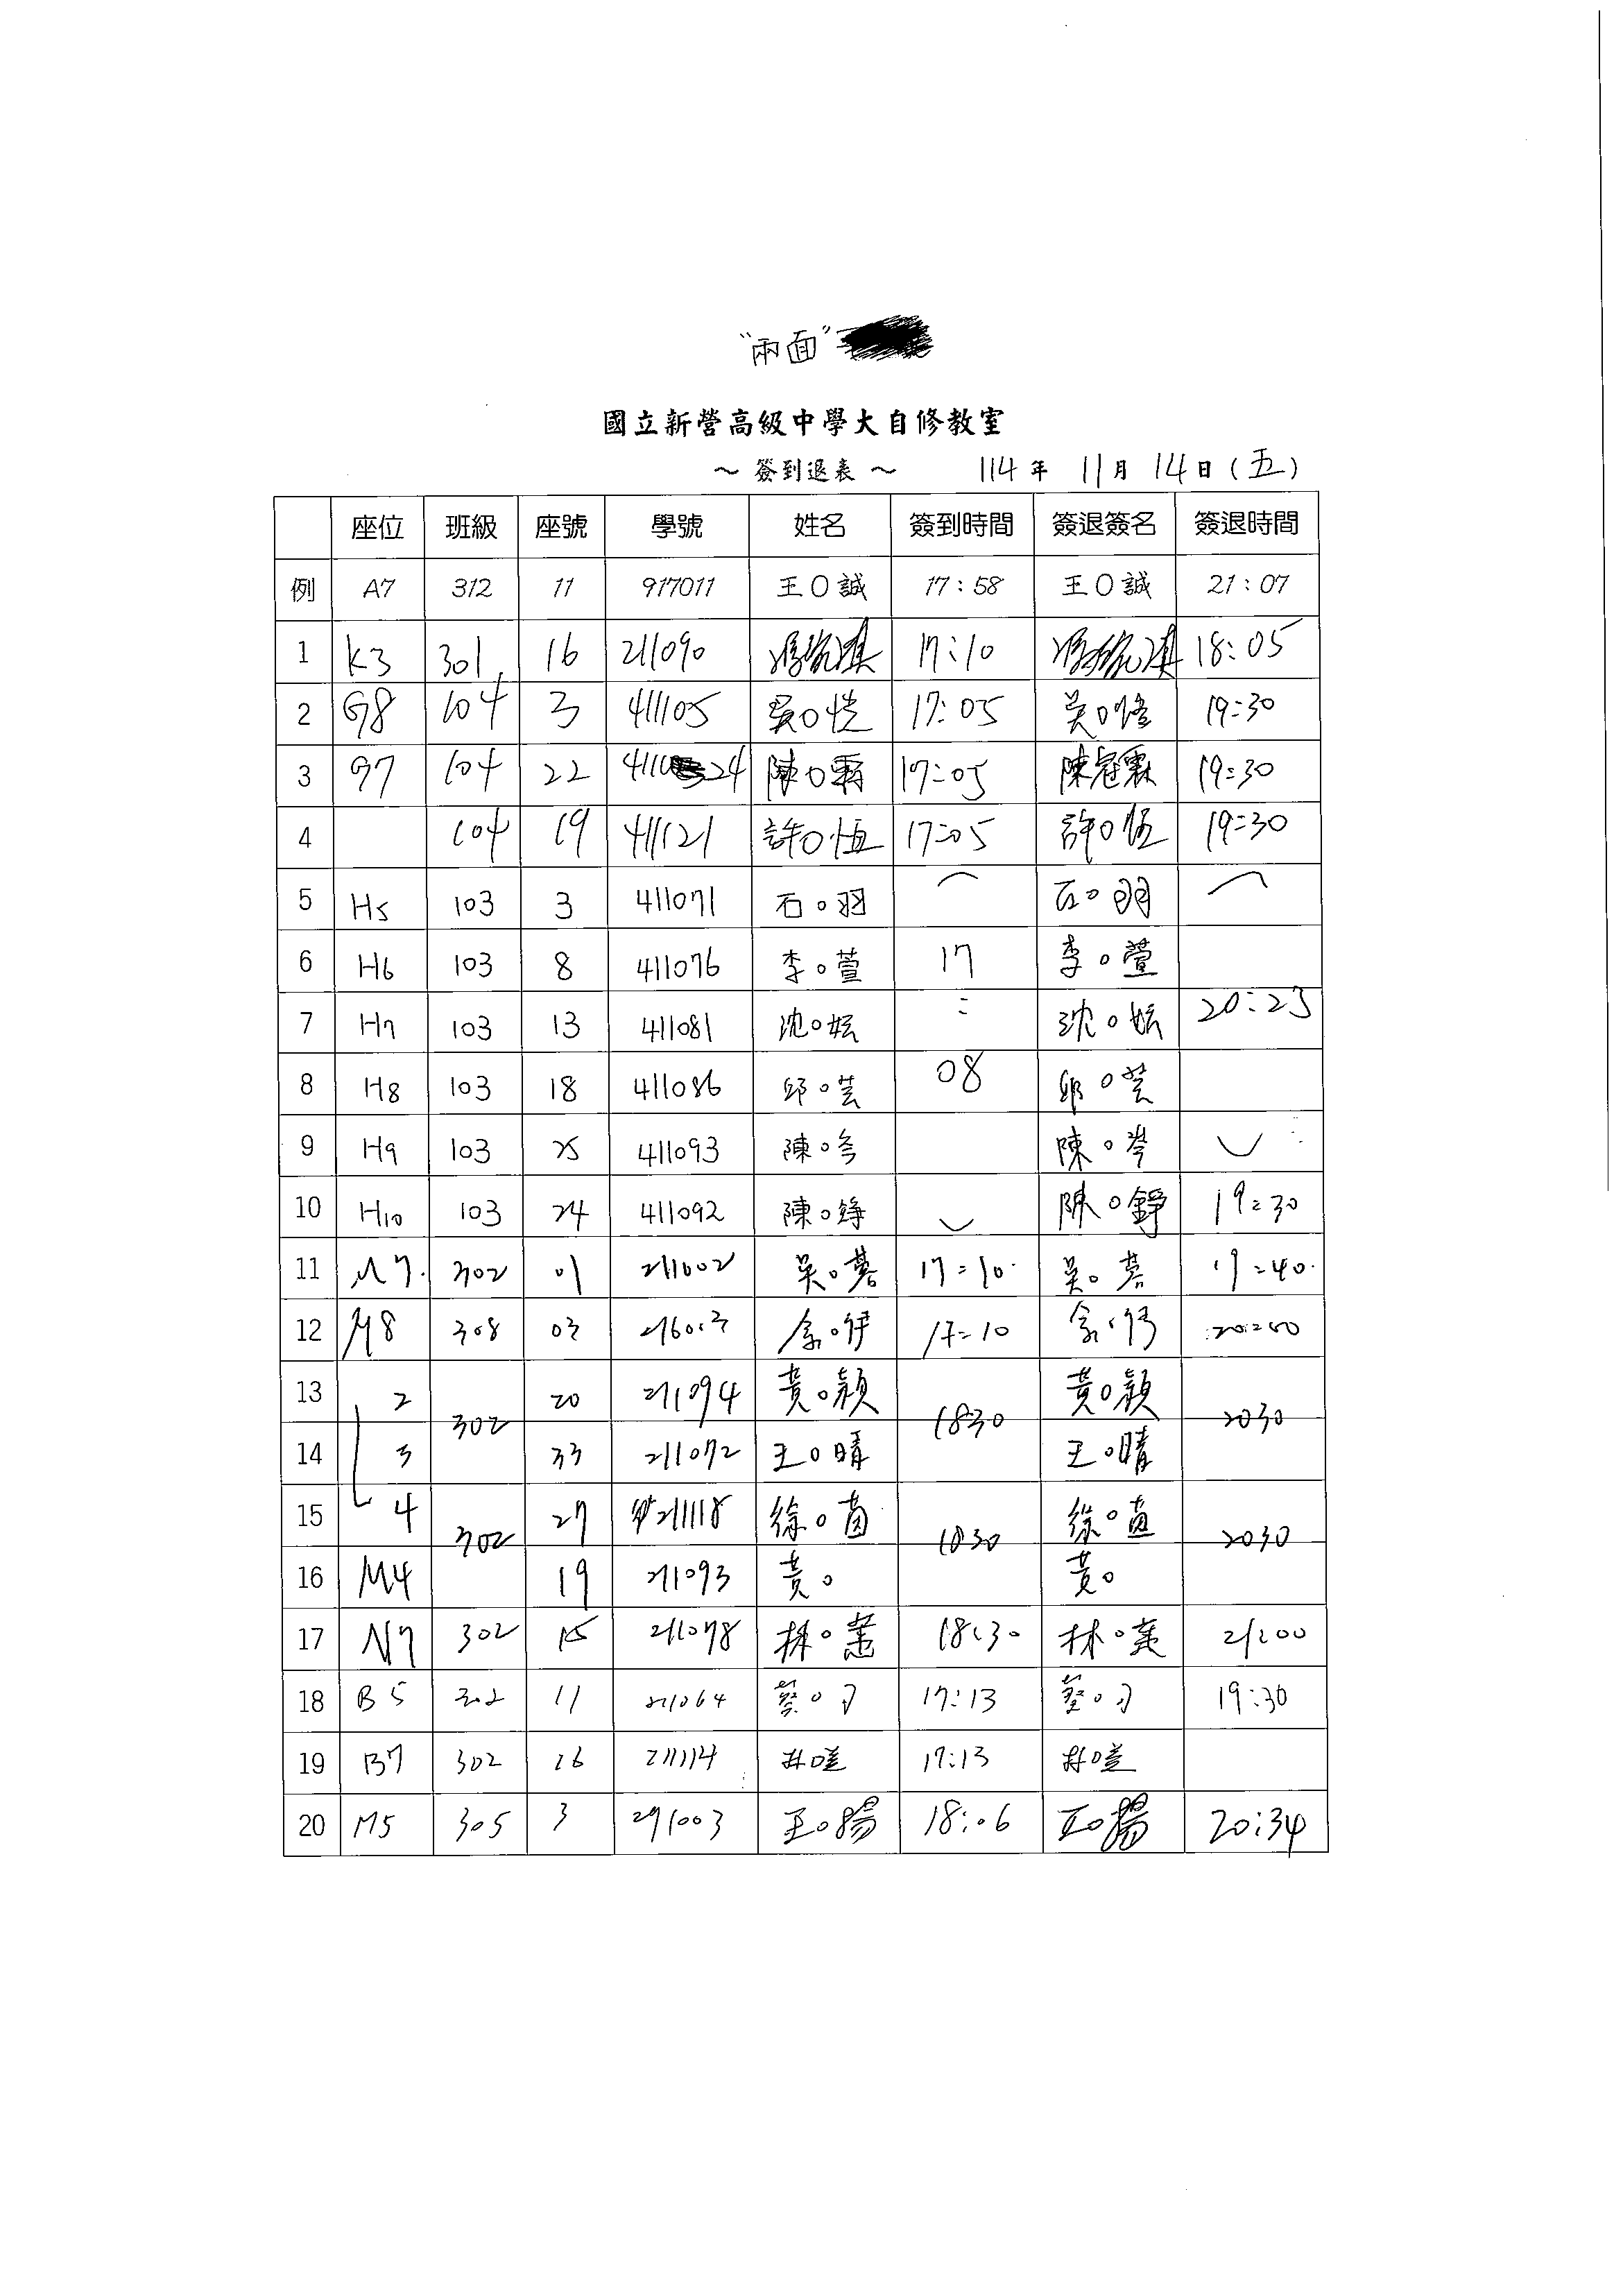 "兩面"
國立新營高級中學大自修教室
～ 簽到退表 ～ 114 年 11 月 14 日 (五)
座位 班級 座號 學號 姓名 簽到時間 簽退簽名 簽退時間
例 A7 312 11 917011 王O誠 17:58 王O誠 21:07
1 K3 301 16 211090 17:10 18:05
2 G8 104 3 411105 吳O愷 17:05 吳O愷 19:30
3 G7 104 22 陳O霖 17:05 陳冠霖 19:30
4 104 19 411121 許O恆 17:05 許O恆 19:30
5 H5 103 3 411071 石O羽 石O羽
6 H6 103 8 411076 李O萱 17 李O萱
7 H7 103 13 411081 沈O妘 : 沈O妘 20:23
8 H8 103 18 411086 邱O芸 08 邱O芸
9 H9 103 25 411093 陳O岑 陳O岑
10 H10 103 24 411092 陳O錚 陳O錚 19:30
11 M7. 302 01 211002 吳O 17:10 吳O 19:40
12 M8 308 03 17:10
13 2 302 20 211094 黃O穎 1830 黃O穎 2030
14 3 33 211072 王O晴 王O晴
15 4 302 27 211118 徐O茵 1830 徐O茵 2030
16 M4 19 211093 黃O 黃O
17 N7 302 15 211078 林O 18:30 林O 21:00
18 B5 302 11 211064 蔡O 17:13 蔡O 19:30
19 B7 302 26 211114 17:13
20 M5 305 3 王O揚 18:06 王O揚 20:34